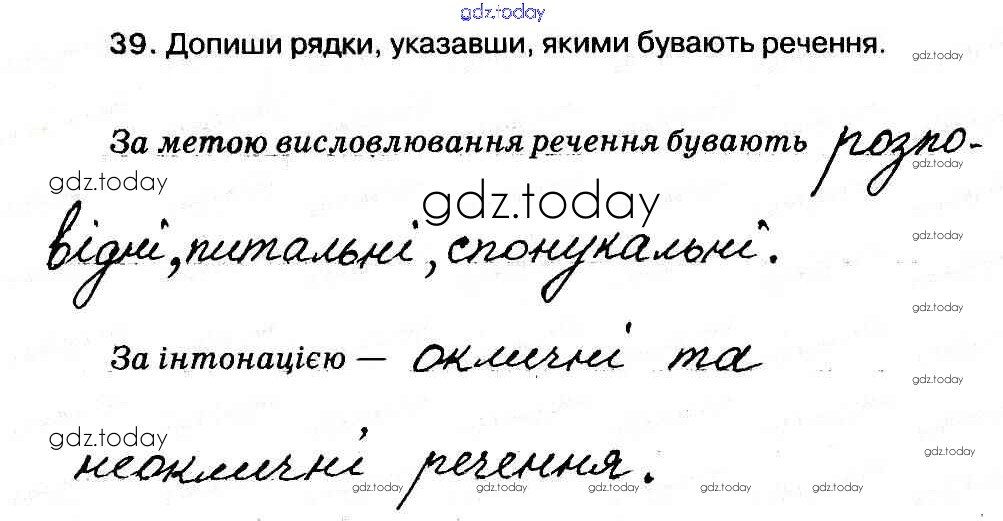 gdz.today
39. Допиши рядки, указавши, якими бувають речення.
gdz.today
За метою висловлювання речення бувають розпо-
gdz.today
gdz.today
gdz.today
відні, питальні, спонукальні.
gdz.today
gdz.today
За інтонацією — окличні та
gdz.today
gdz.today
gdz.today
неокличні речення.
gdz.today
gdz.today
gdz.today
gdz.today
gdz.today